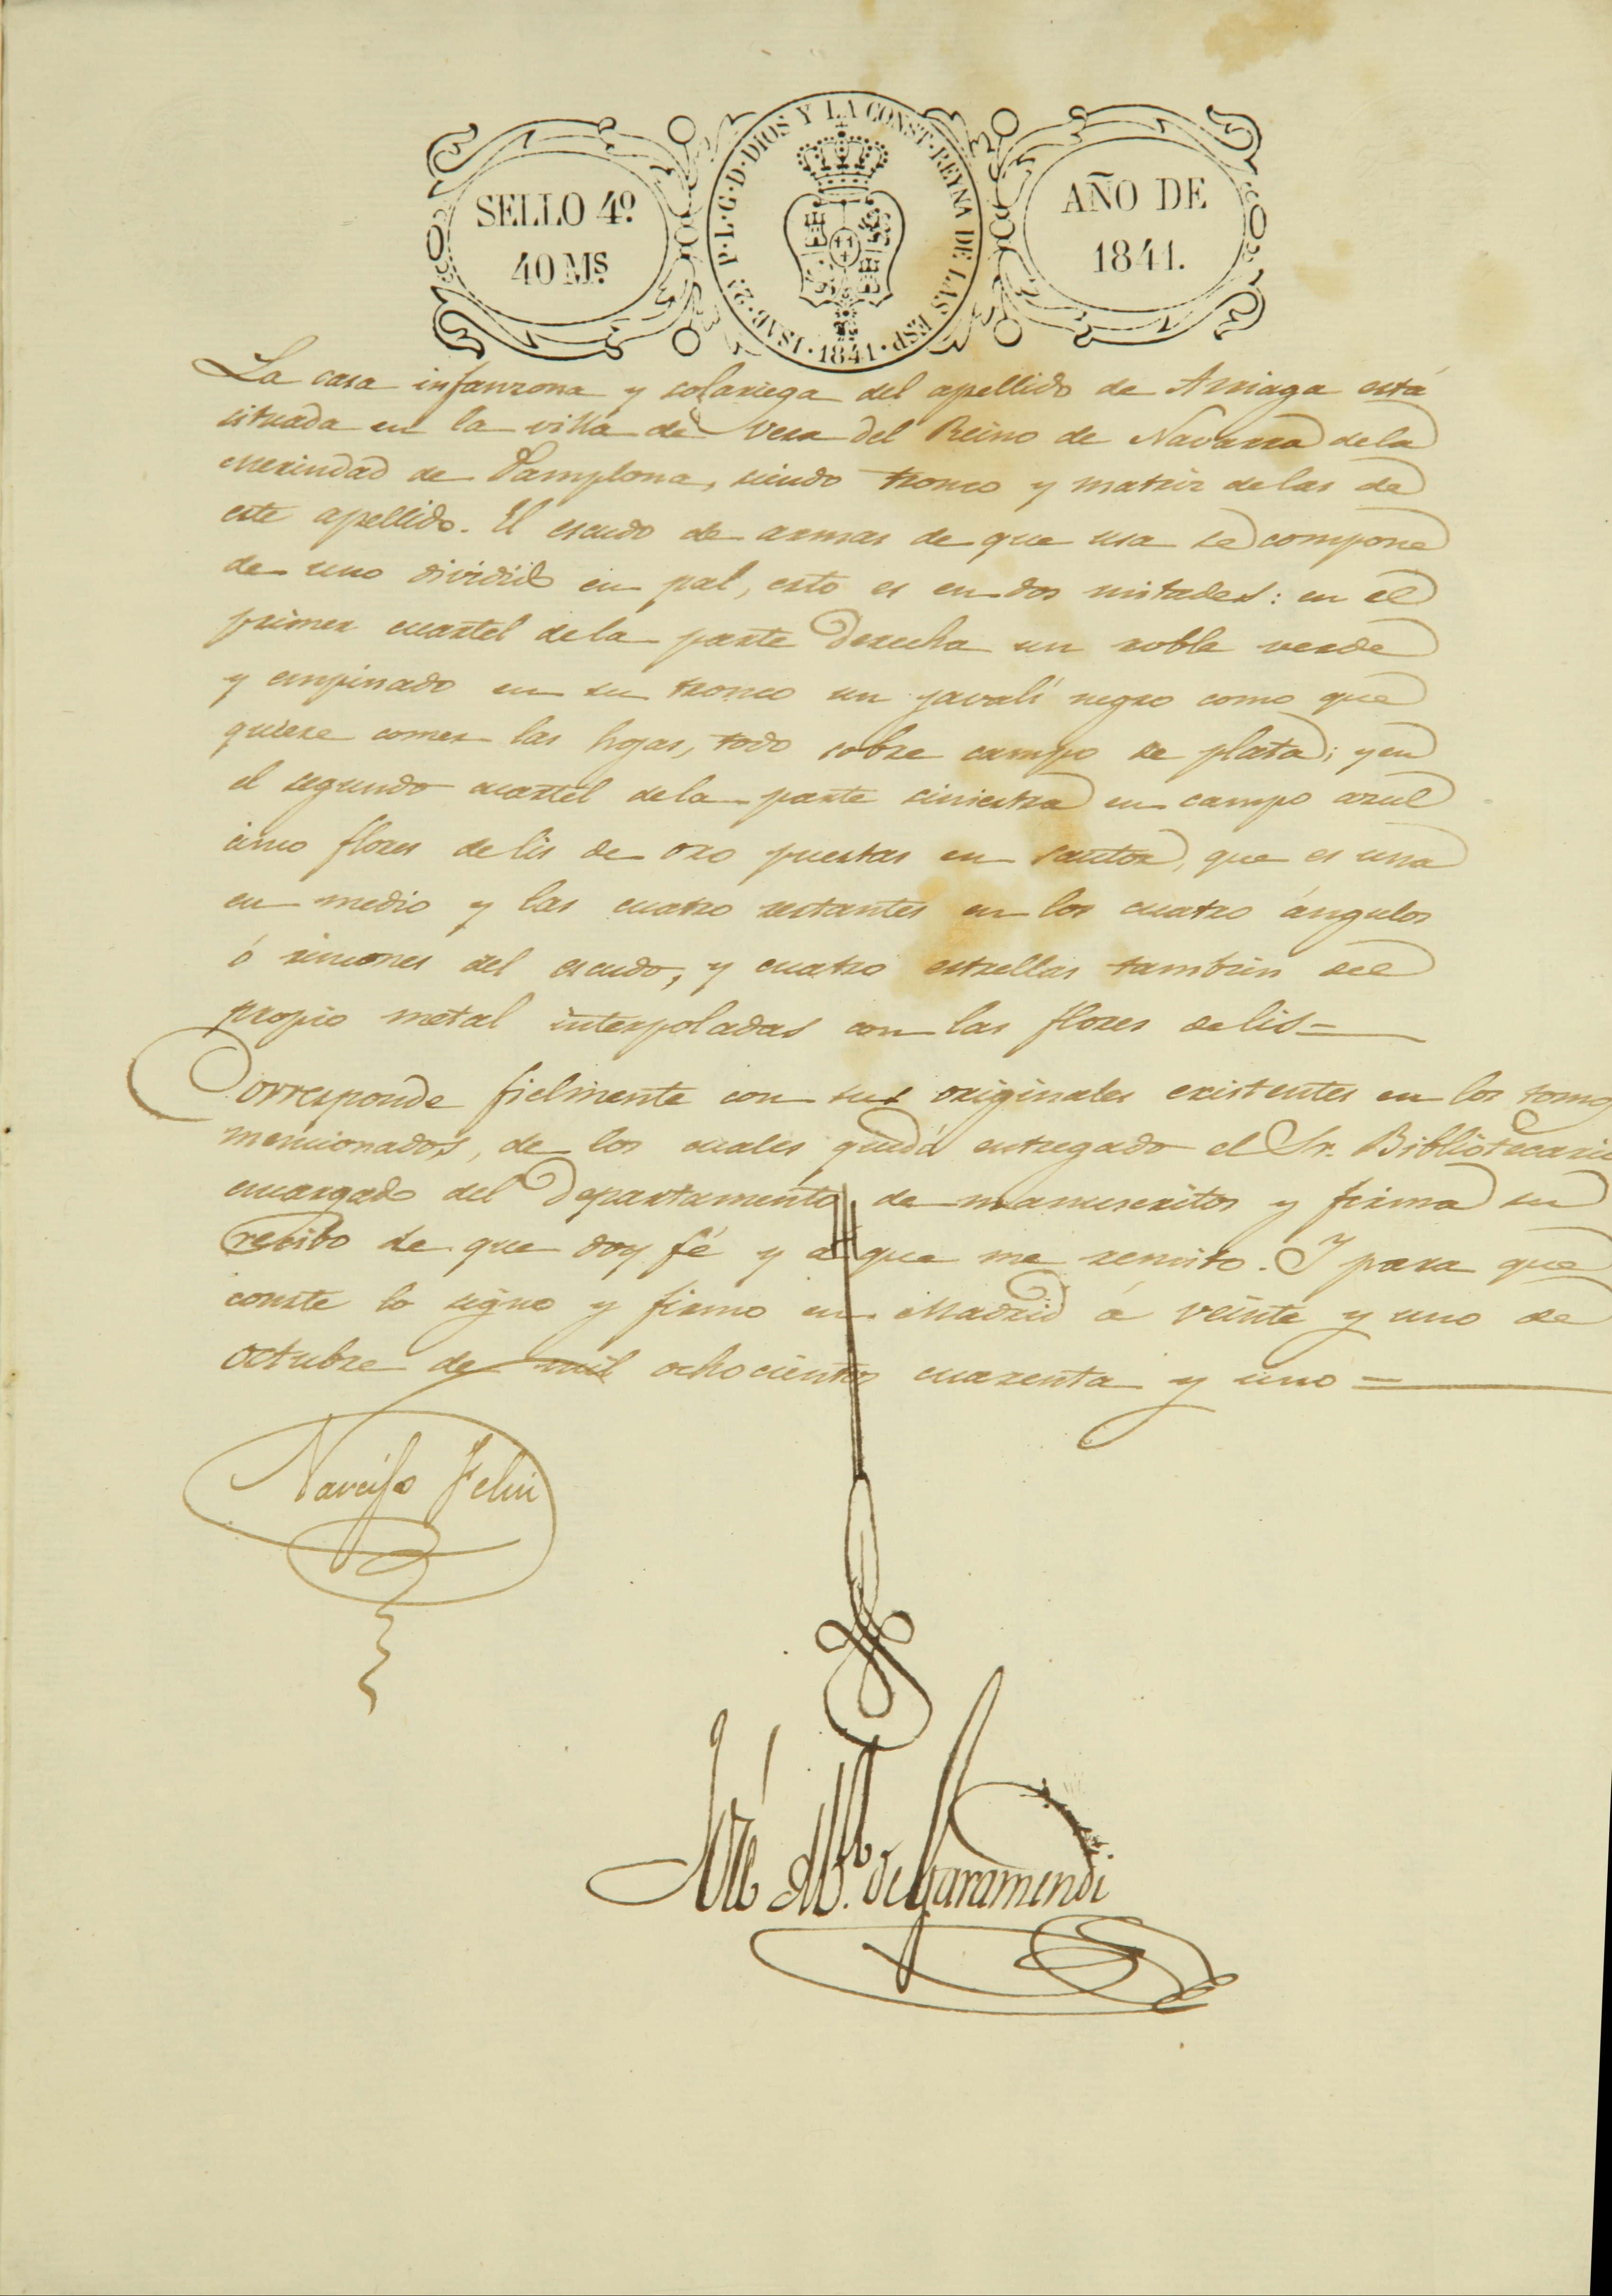 SELLO 4º
40 Ms.
ISAB. 2ª P. L. G. D. DIOS Y LA CONST. REYNA DE LAS ESP. 1841.
AÑO DE
1841.
La casa infanzona y solariega del apellido de Arriaga está
situada en la villa de Vera del Reino de Navarra de la
Merindad de Pamplona, siendo tronco y matriz de las de
este apellido. El escudo de armas de que usa se compone
de uno dividido en pal, esto es en dos mitades: en el
primer cuartel de la parte derecha un roble verde
y empinado en su tronco un javalí negro como que
quiere comer las hojas, todo sobre campo de plata; y en
el segundo cuartel de la parte siniestra en campo azul
cinco flores de lis de oro puestas en sautor, que es una
en medio y las cuatro restantes en los cuatro ángulos
ó rincones del escudo, y cuatro estrellas tambien del
propio metal interpoladas con las flores de lis =
Corresponde fielmente con sus originales existentes en los tomos
mencionados, de los cuales quedó entregado el Sr. Bibliotecario
encargado del Departamento de manuscritos y firma su
recibo de que doy fé y a que me remito. Y para que
conste lo signo y firmo en Madrid á veinte y uno de
Octubre de mil ochocientos cuarenta y uno =
Narciso Feliu
José Mª. de Garamendi